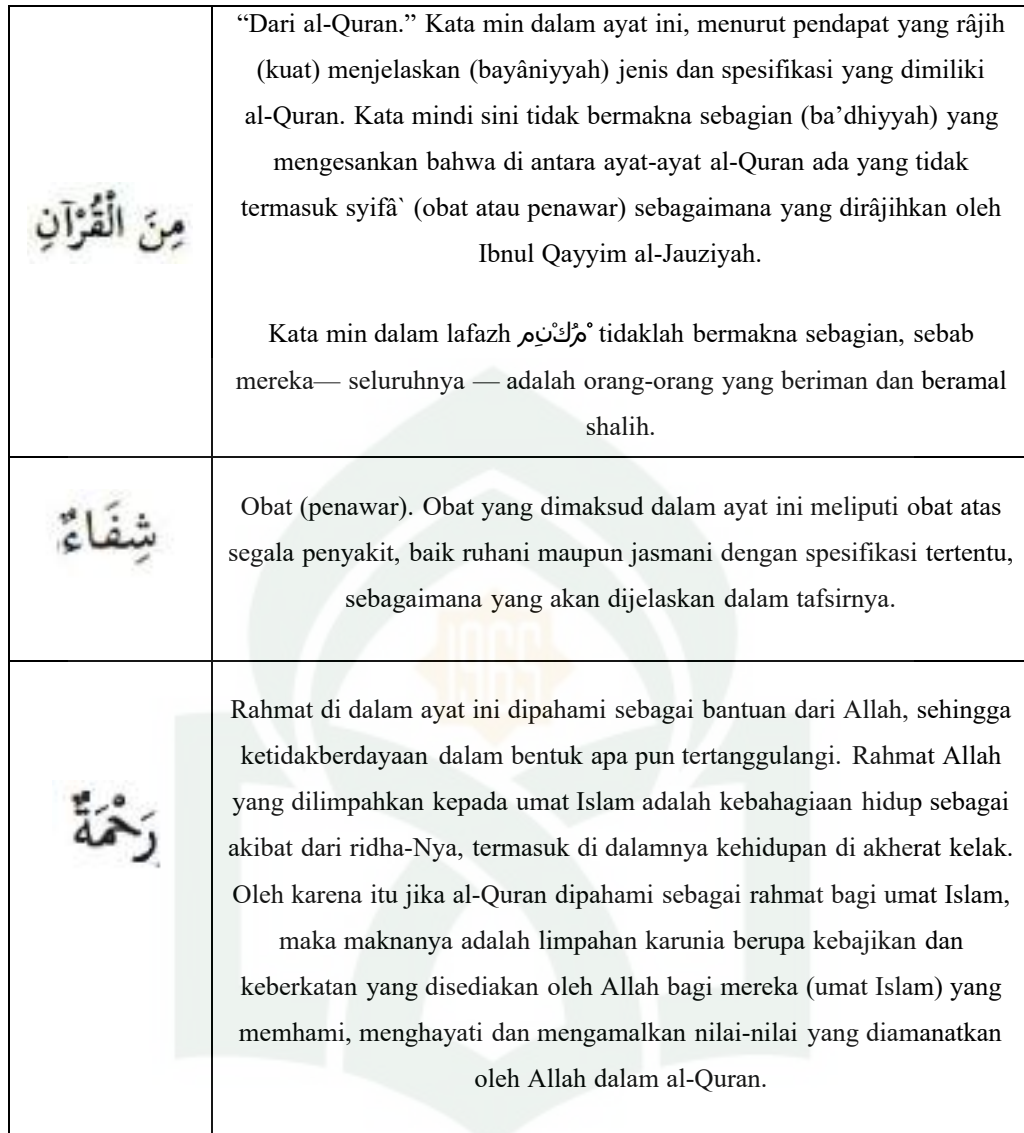 “Dari al-Quran.” Kata min dalam ayat ini, menurut pendapat yang râjih
(kuat) menjelaskan (bayâniyyah) jenis dan spesifikasi yang dimiliki
al-Quran. Kata mindi sini tidak bermakna sebagian (ba’dhiyyah) yang
mengesankan bahwa di antara ayat-ayat al-Quran ada yang tidak
termasuk syifâ` (obat atau penawar) sebagaimana yang dirâjihkan oleh
Ibnul Qayyim al-Jauziyah.
مِنَ الْقُرْآنِ
Kata min dalam lafazh tidaklah bermakna sebagian, sebab
mereka— seluruhnya — adalah orang-orang yang beriman dan beramal
shalih.
شِفَاءٌ
Obat (penawar). Obat yang dimaksud dalam ayat ini meliputi obat atas
segala penyakit, baik ruhani maupun jasmani dengan spesifikasi tertentu,
sebagaimana yang akan dijelaskan dalam tafsirnya.
رَحْمَةٌ
Rahmat di dalam ayat ini dipahami sebagai bantuan dari Allah, sehingga
ketidakberdayaan dalam bentuk apa pun tertanggulangi. Rahmat Allah
yang dilimpahkan kepada umat Islam adalah kebahagiaan hidup sebagai
akibat dari ridha-Nya, termasuk di dalamnya kehidupan di akherat kelak.
Oleh karena itu jika al-Quran dipahami sebagai rahmat bagi umat Islam,
maka maknanya adalah limpahan karunia berupa kebajikan dan
keberkatan yang disediakan oleh Allah bagi mereka (umat Islam) yang
memhami, menghayati dan mengamalkan nilai-nilai yang diamanatkan
oleh Allah dalam al-Quran.